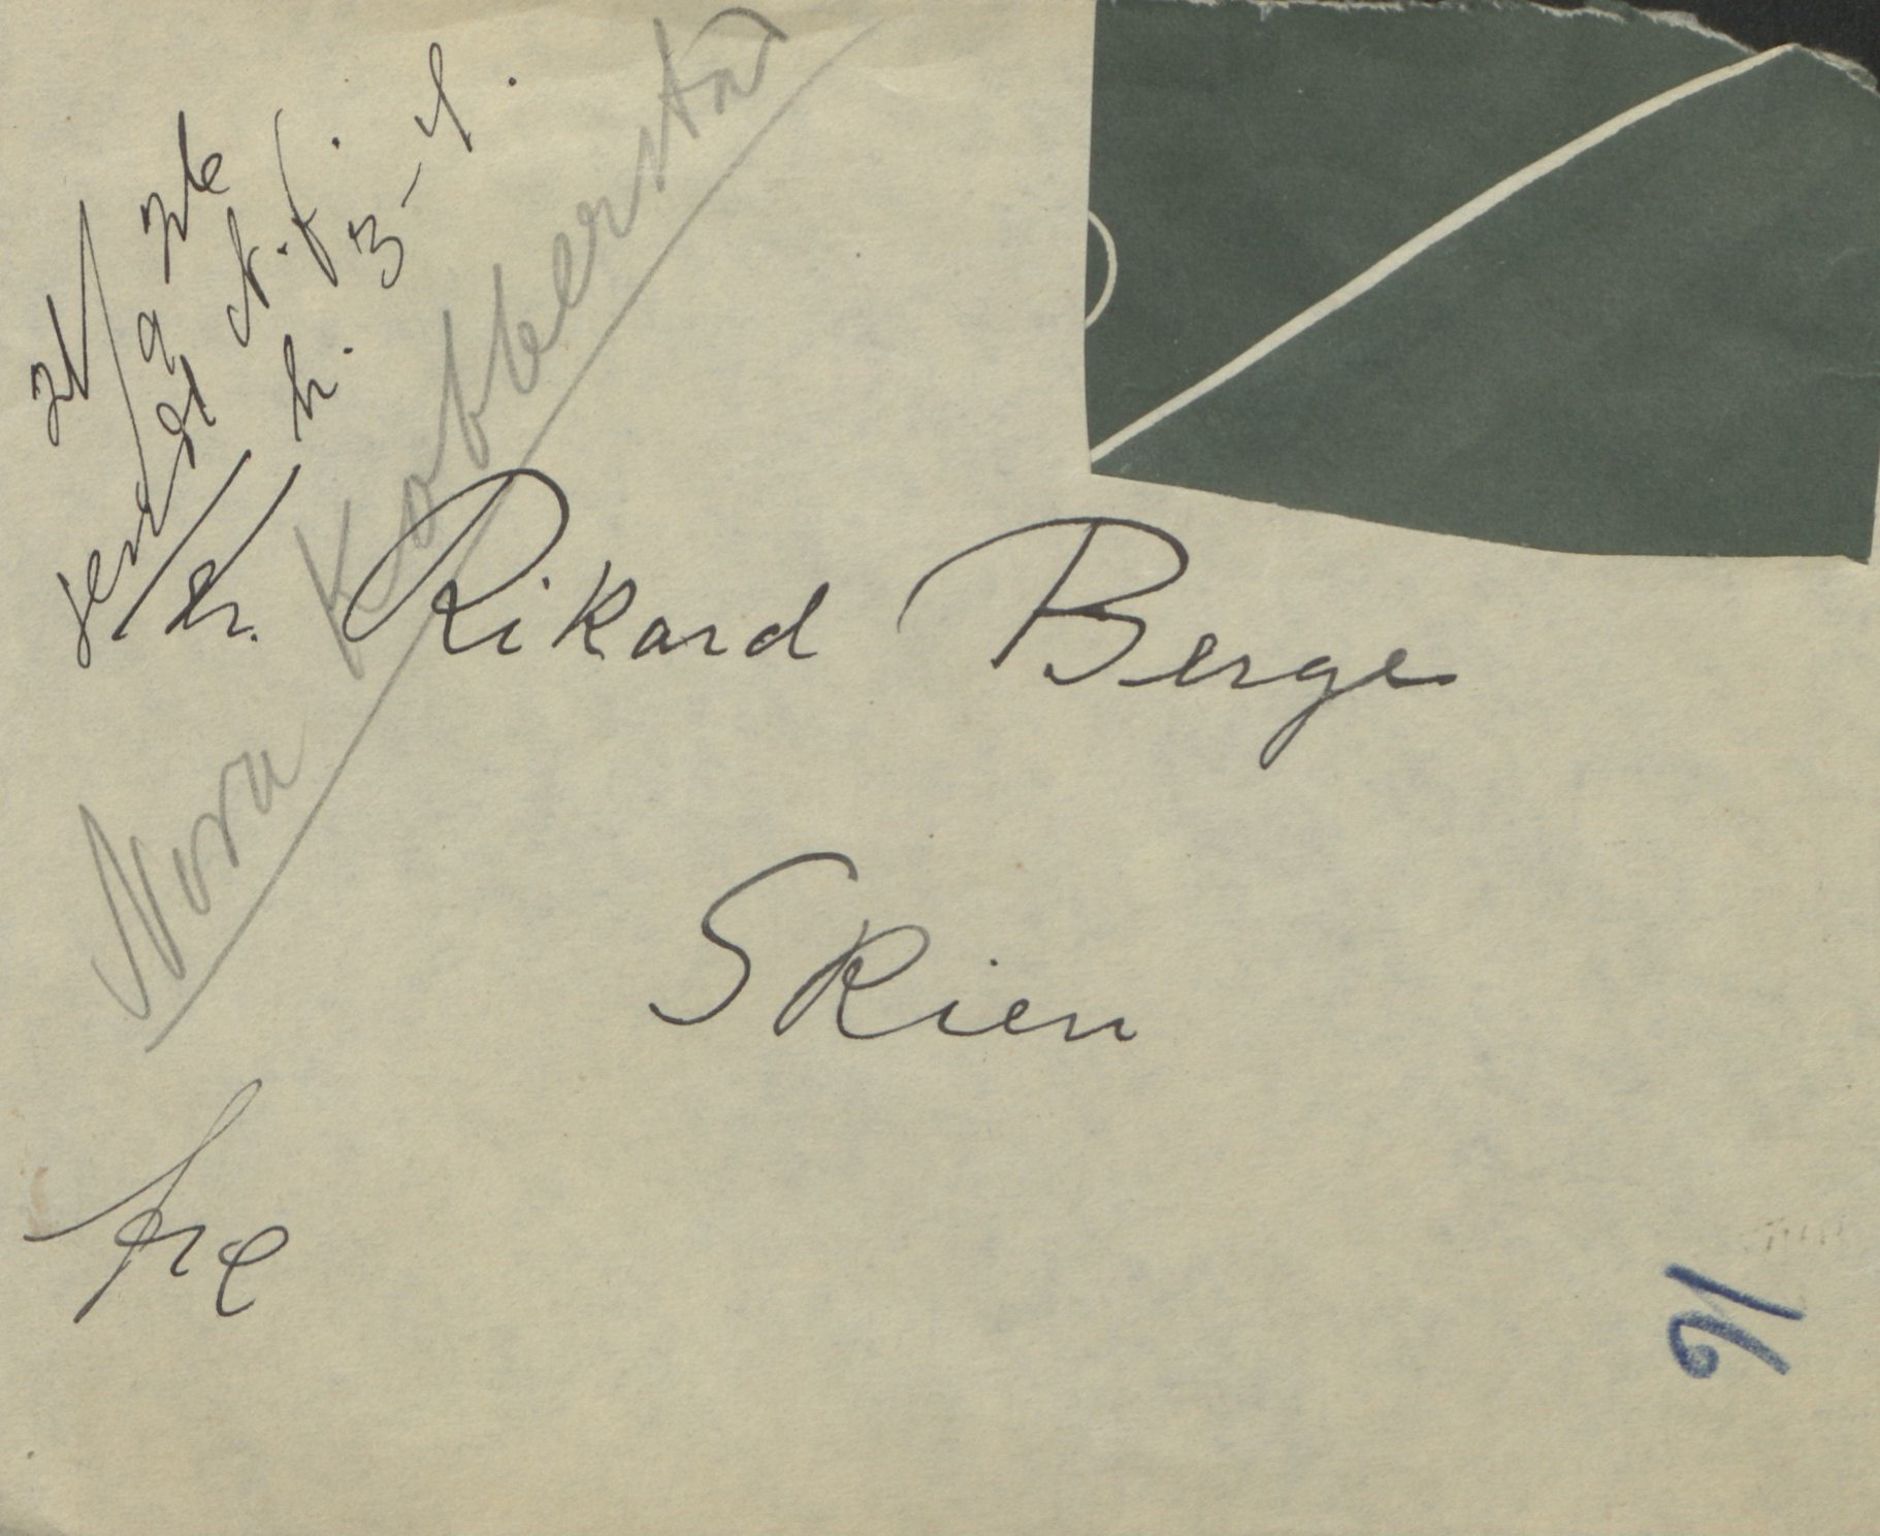 21/9 26
sendt N.f.
h. 3-4.
Nora Kobberstad
Hr. Rikard Berge
Skien
frk
16